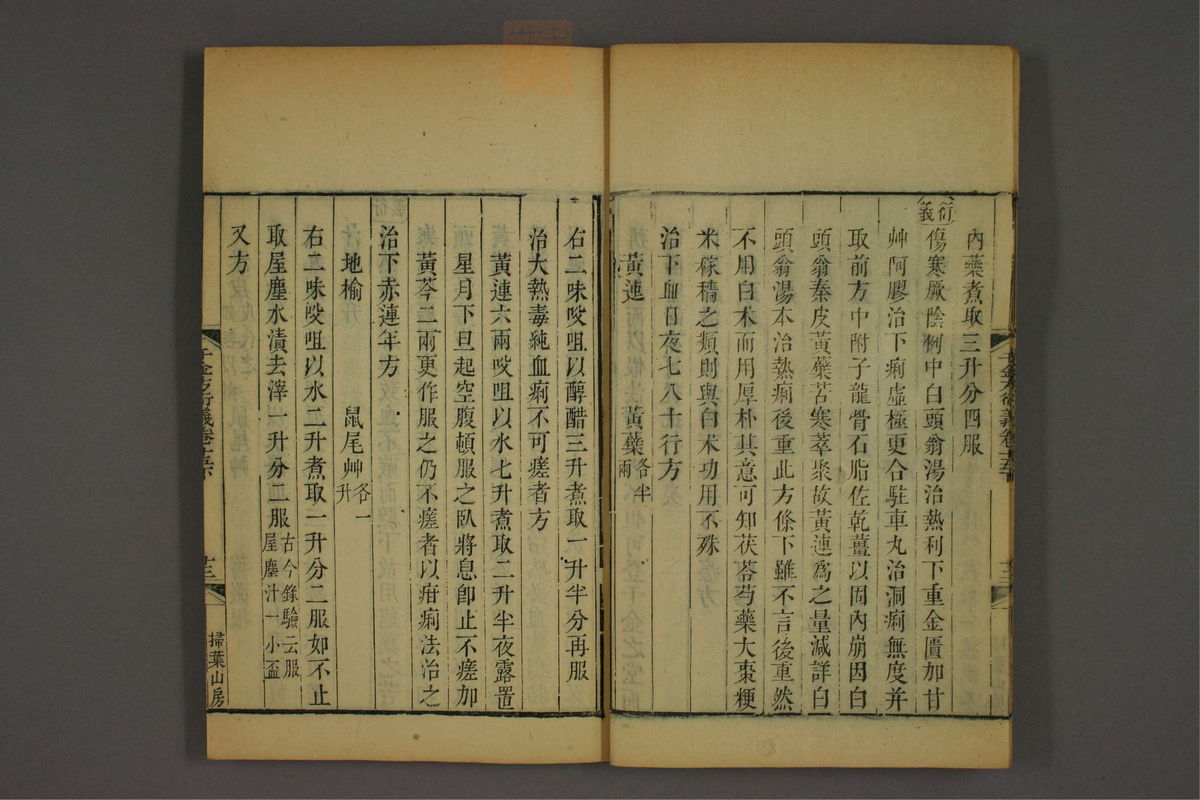 內藥煮取三升分四服
衍義
傷寒厥陰例中白頭翁湯治熱利下重金匱加甘
艸阿膠治下痢虛極更合駐車丸治洞痢無度并
取前方中附子龍骨石脂佐乾薑以固內崩因白
頭翁秦皮黃蘗苦寒萃聚故黃連爲之量減詳白
頭翁湯本治熱痢後重此方條下雖不言後重然
不用白朮而用厚朴其意可知茯苓芍藥大棗粳
米稼穡之類則與白朮功用不殊
治下血日夜七八十行方
黃連 黃蘗各四兩
右二味㕮咀以醇醋三升煮取一升半分再服
治大熱毒純血痢不可瘥者方
黃連六兩㕮咀以水七升煮取二升半夜露置
星月下旦起空腹頓服之臥將息卽止不瘥加
黃芩二兩更作服之仍不瘥者以疳痢法治之
治下赤連年方
地榆 鼠尾艸各一升
右二味㕮咀以水二升煮取一升分二服如不止
取屋塵水漬去滓一升分二服古今錄驗云服屋塵汁一小盃
又方
千金方衍義卷十五下
掃葉山房